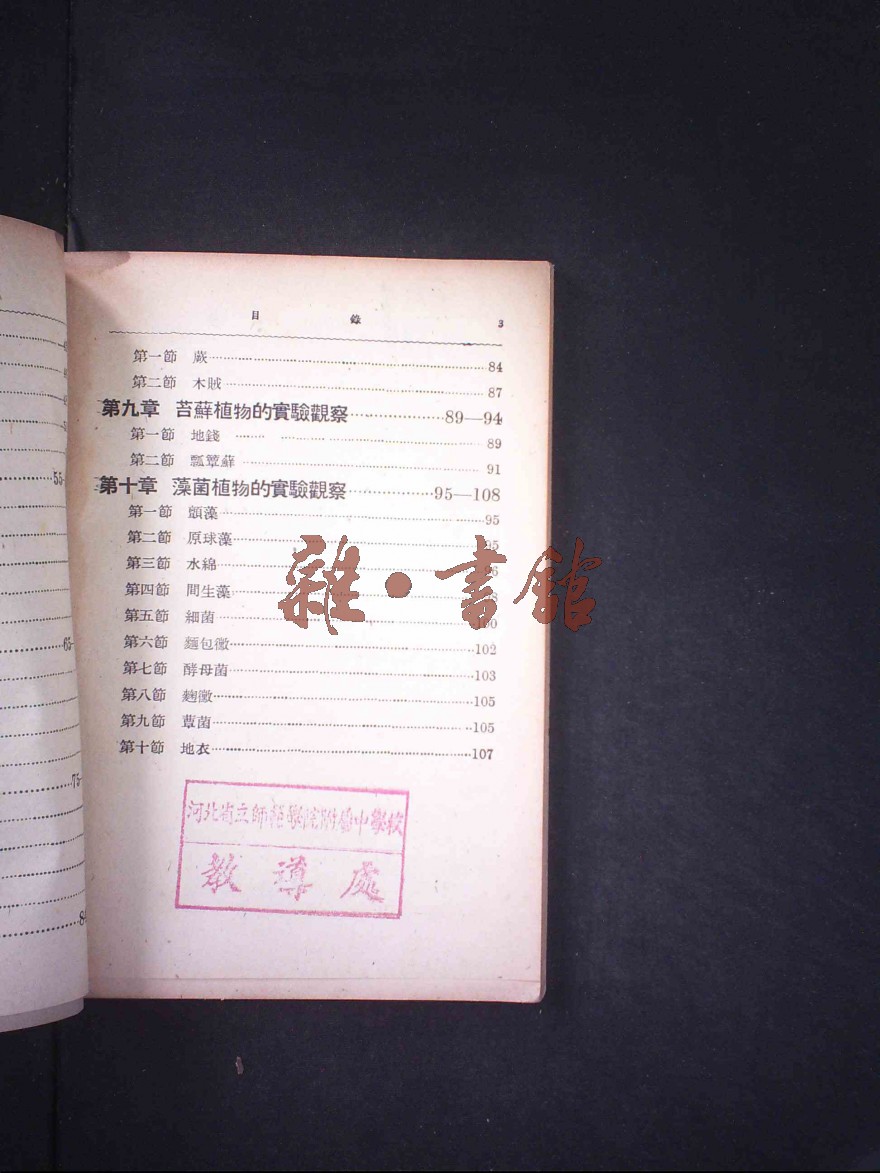 目 錄 3
第一節 蕨 84
第二節 木賊 87
第九章 苔蘚植物的實驗觀察 89—94
第一節 地錢 89
第二節 瓢蕈蘚 91
第十章 藻菌植物的實驗觀察 95—108
第一節 顫藻 95
第二節 原球藻 95
第三節 水綿
第四節 間生藻
第五節 細菌 100
第六節 麵包黴 102
第七節 酵母菌 103
第八節 麴黴 105
第九節 蕈菌 105
第十節 地衣 107
雜·書館
河北省立師範學院附屬中學校
教導處
55
65
75
84